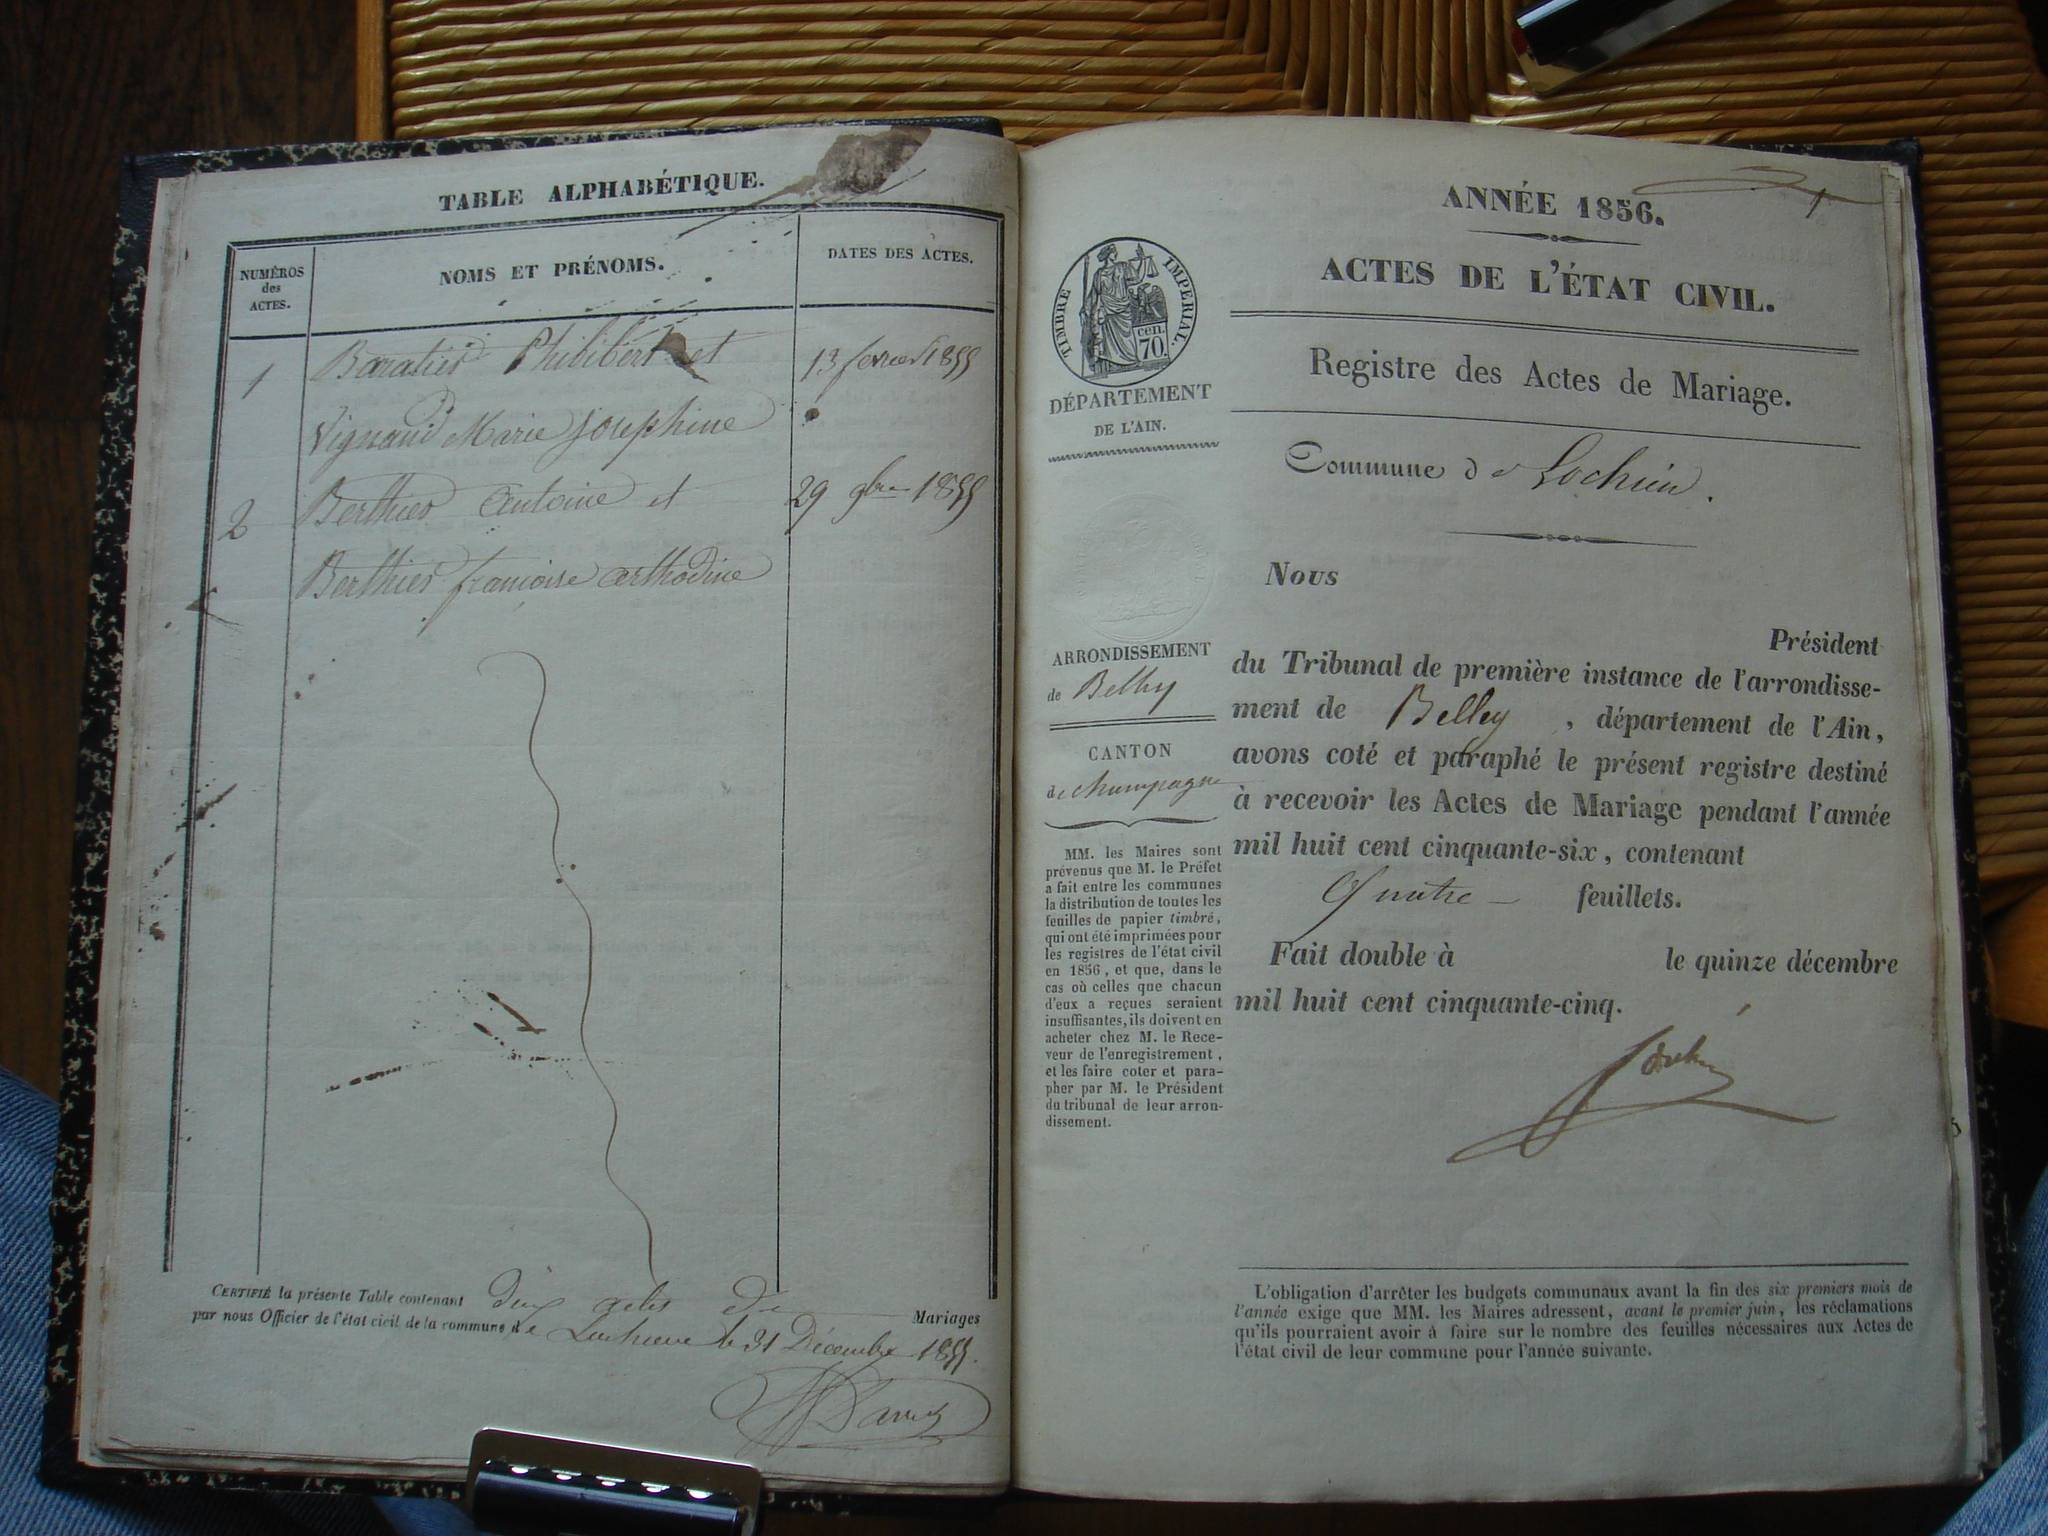 TABLE ALPHABÉTIQUE.
NUMÉROS
des
ACTES.
NOMS ET PRÉNOMS.
DATES DES ACTES.
1 Baratier Philibert et 13 fevrier 1855
Vignand Marie josephine
2 Berthier Antoine et 29 9bre 1855
Berthier francoise arthodine
CERTIFIÉ la présente Table contenant deux actes de Mariages
par nous Officier de l'état civil de la commune de Lochieu le 31 Décembre 1855.
ANNÉE 1856.
1
ACTES DE L'ÉTAT CIVIL.
Registre des Actes de Mariage.
TIMBRE IMPÉRIAL.
cen.
70.
DÉPARTEMENT
DE L'AIN.
Commune de Lochieu.
ARRONDISSEMENT
de Belley
CANTON
de champagne
MM. les Maires sont
prévenus que M. le Préfet
a fait entre les communes
la distribution de toutes les
feuilles de papier timbré,
qui ont été imprimées pour
les registres de l'état civil
en 1856, et que, dans le
cas où celles que chacun
d'eux a reçues seraient
insuffisantes, ils doivent en
acheter chez M. le Rece-
veur de l'enregistrement,
et les faire coter et para-
pher par M. le Président
du tribunal de leur arron-
dissement.
Nous
Président
du Tribunal de première instance de l'arrondisse-
ment de Belley, département de l'Ain,
avons coté et paraphé le présent registre destiné
à recevoir les Actes de Mariage pendant l'année
mil huit cent cinquante-six, contenant
Quatre feuillets.
Fait double à le quinze décembre
mil huit cent cinquante-cinq.
L'obligation d'arrêter les budgets communaux avant la fin des six premiers mois de
l'année exige que MM. les Maires adressent, avant le premier juin, les réclamations
qu'ils pourraient avoir à faire sur le nombre des feuilles nécessaires aux Actes de
l'état civil de leur commune pour l'année suivante.